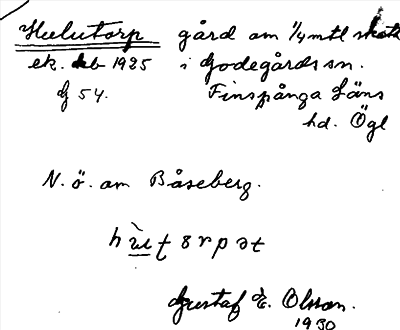 Hulutorp gård om 1/4 mtl skatte
ek. kb 1925 i Godegårds sn.
G 54. Finspånga läns
hd. Ögl
N. ö. om Båseberg.
Gustaf E. Olsson.
1930